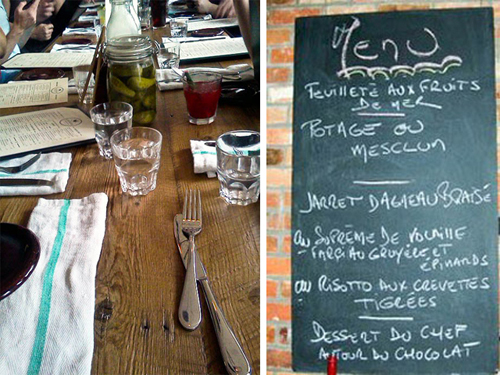 Menu
FEUILLETÉ AUX FRUITS
DE MER
POTAGE OU
MESCLUN
JARRET D'AGNEAU BRAISÉ
OU SUPRÈME DE VOLAILLE
FARCI AU GRUYÈRE ET
ÉPINARDS
OU RISOTTO AUX CREVETTES
TIGRÉES
DESSERT DU CHEF
AUTOUR DU CHOCOLAT